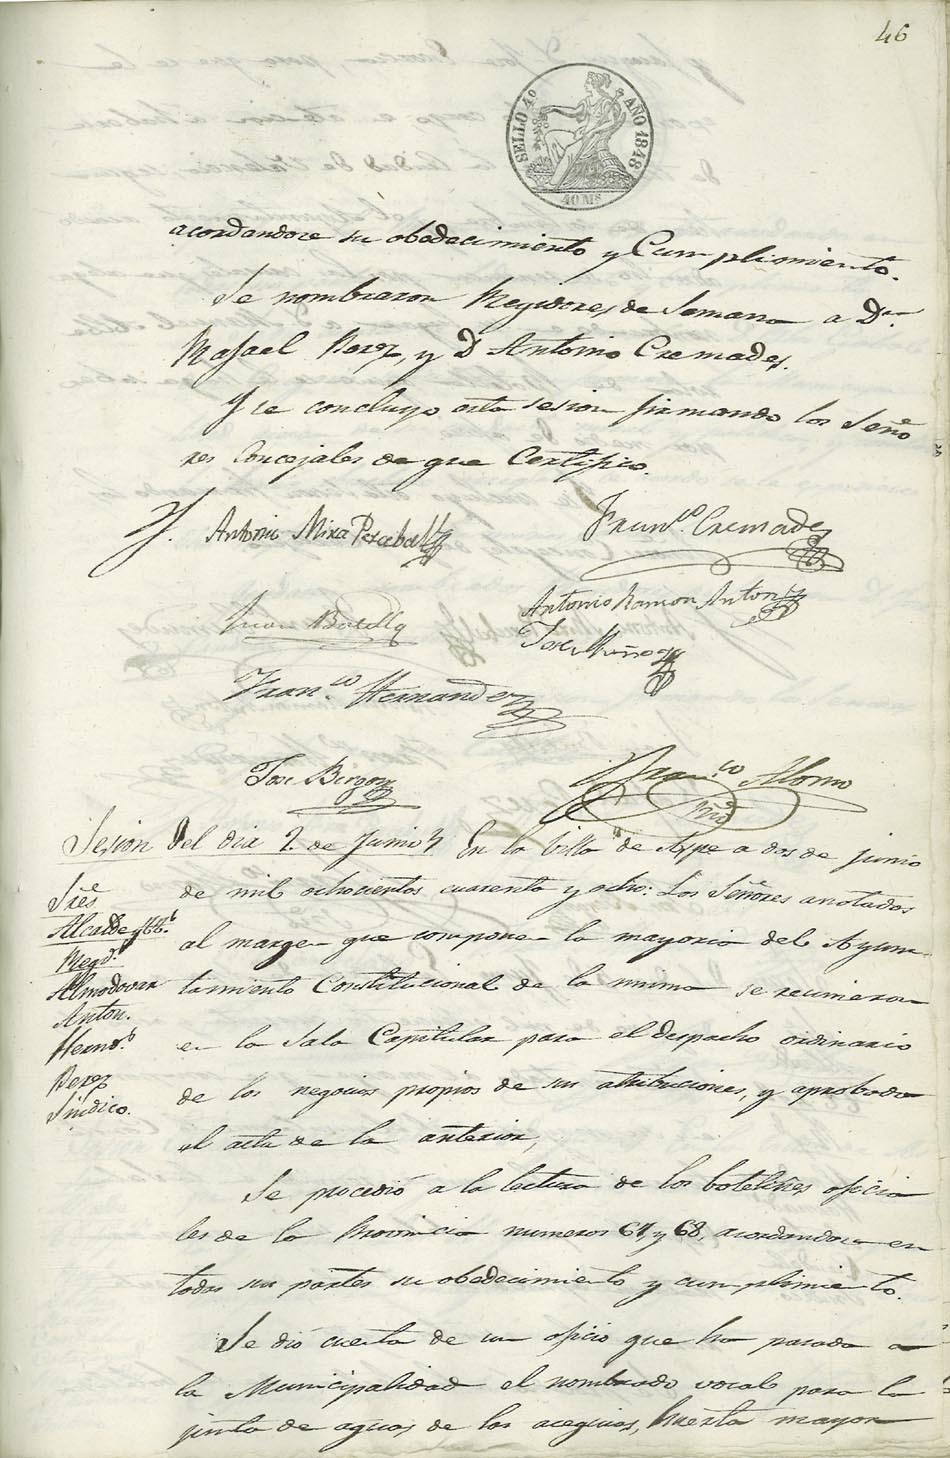 46
SELLO 4º AÑO 1848
40 Ms
acordandose su obedecimiento y Cumplimiento.
Se nombraron Regidores de Semana a Dn
Rafael Perez, y D Antonio Cremades.
Y se concluyo esta sesion firmando los Seño
res Concejales de que Certifico.
Antonio Mira Perceball
Franco. Cremades
Antonio Ramon Anton
Juan Botella
Jose Muñoz
Franco. Hernandez
Jose Berges
Franco Alonso
Srio
Sesion del dia 2 de Junio
En la Villa de Aspe a dos de junio
de mil ochocientos cuarenta y ocho: Los Señores anotados
al margen que componen la mayoria del Ayun-
tamiento Constitucional de la misma se reunieron
en la Sala Capitular para el despacho ordinario
de los negocios propios de sus atribuciones, y aprobada
el acta de la anterior,
Sres
Alcalde y
Regd.
Almodovar
Anton.
Hernz.
Perez
Sindico.
Se procedió a la lectura de los boletines oficia
les de la Provincia numeros 67, y 68, acordandose en
todas sus partes su obedecimiento y cumplimiento.
Se dió cuenta de un oficio que ha pasado a
la Municipalidad el nombrado vocal para la
junta de aguas de los acequias, huerta mayor